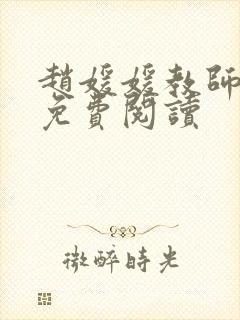 趙媛媛教師
免費閱讀
微醉時光